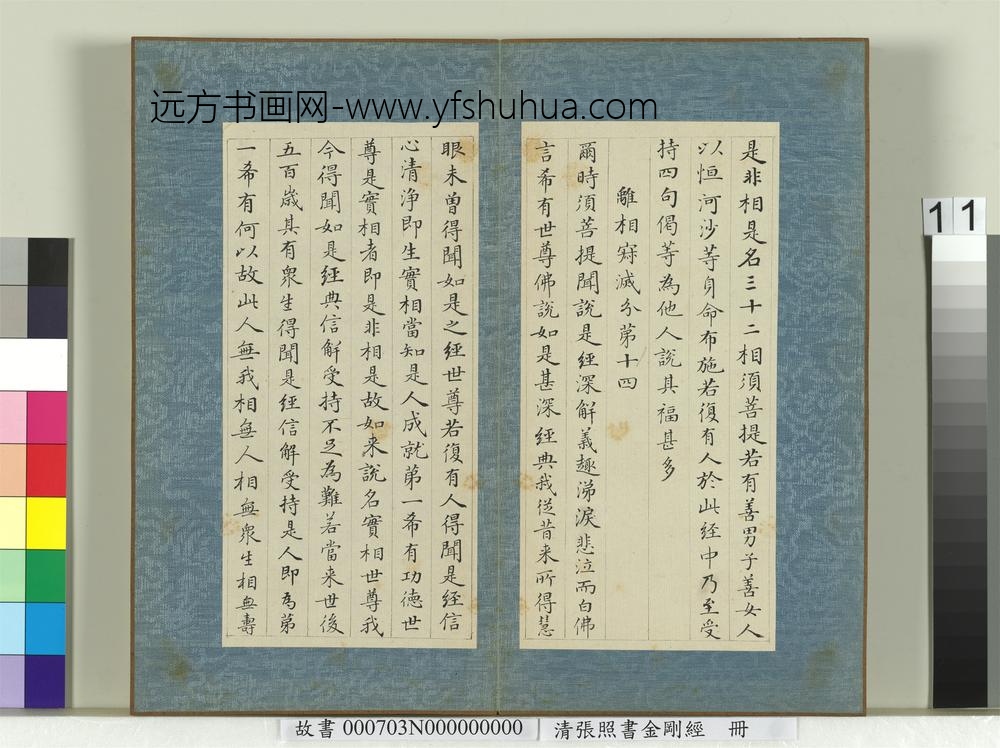 远方书画网-www.yfshuhua.com
是非相是名三十二相須菩提若有善男子善女人
以恒河沙等身命布施若復有人於此經中乃至受
持四句偈等為他人說其福甚多
離相寂滅分第十四
爾時須菩提聞說是經深解義趣涕淚悲泣而白佛
言希有世尊佛說如是甚深經典我從昔来所得慧
眼未曾得聞如是之經世尊若復有人得聞是經信
心清淨即生實相當知是人成就第一希有功德世
尊是實相者即是非相是故如来說名實相世尊我
今得聞如是經典信解受持不足為難若當来世後
五百歲其有衆生得聞是經信解受持是人即為第
一希有何以故此人無我相無人相無衆生相無壽
11
故書 000703N000000000 清張照書金剛經 冊